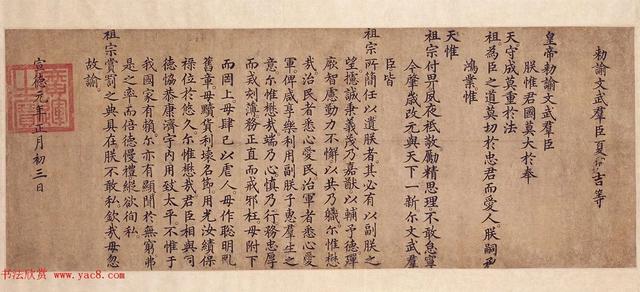 勑諭文武羣臣夏原吉等
皇帝勑諭文武羣臣
朕惟君國莫大於奉
天守成莫重於法
祖為臣之道莫切於忠君而愛人朕嗣承
鴻業惟
天惟
祖宗付畀夙夜祗敬勵精思理不敢怠寧
今肇歲改元與天下一新尔文武羣
臣皆
祖宗所簡任以遺朕者其必有以副朕之
望攄誠秉義茂乃嘉猷以輔予德殫
廒智慮勤力不懈以共乃職尔惟懋
哉治民者悉心愛民治軍者悉心愛
軍俾咸享樂利用副朕子惠羣生之
意尔惟懋哉端乃心慎乃行務忠厚
而戒刻薄務正直而戒邪枉毋附下
而罔上毋肆己以虐人毋作聰明亂
舊章毋黷貨利壊名節用光汝績保
祿位於悠久尔惟懋哉君臣相與同
德協恭康濟宇內用致太平不惟于
我國家有賴尔亦有顯聞於無窮弗
是之率而倍德慢禮縱欲徇私
祖宗賞罰之典具在朕不敢私欽哉毋忽
故諭
宣德元年正月初三日
书法欣赏 www.yac8.com